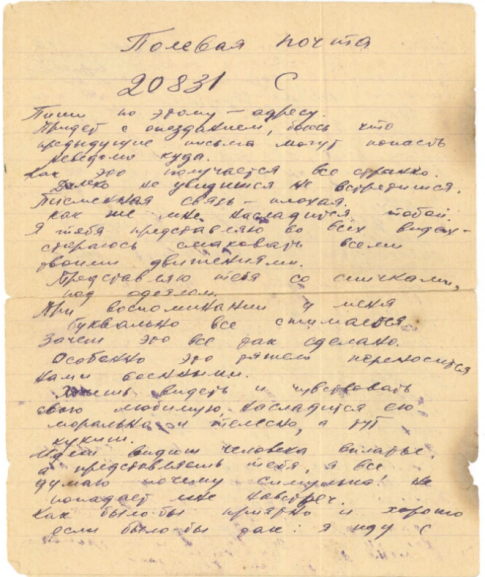 Полевая почта
20831 С
Пиши по этому — адресу.
Придет с опозданием, боюсь что
предыдущие письма могут попасть
неведомо куда.
Как это получается все странно.
Далеко не увидишся не встретишся.
Письменная связь — плохая.
Как же мне насладится тобой.
Я тебя представляю во всех видах —
стараюсь смаковать всеми
твоими движениями.
Представляю тебя со спичками,
под одеялом.
При воспоминании у меня
буквально все сжимается
Зачем это все так сделано.
Особенно это тяжел переносится
нами военными.
Хочешь видеть и чувствовать
свою любимую, насладится ею
морально и телесно, а тут
кукиш.
Идеш видиш человека в платье
а представляешь тебя, я все
думаю почему Симулька! не
попадает мне навстреч.
Как было-бы приятно и хорошо
если было-бы так: я иду с